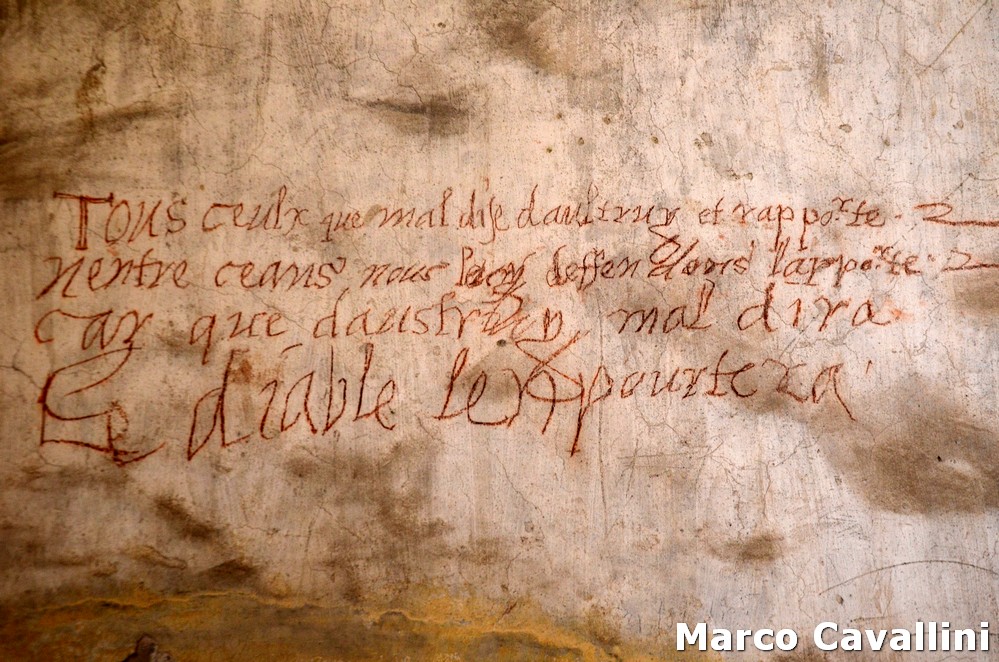 Tous ceulx que mal dise daultruy et rapporte
nentre ceans nous luy deffendons lapporte
car que daustruy mal dira
Le diable le pourtera
Marco Cavallini